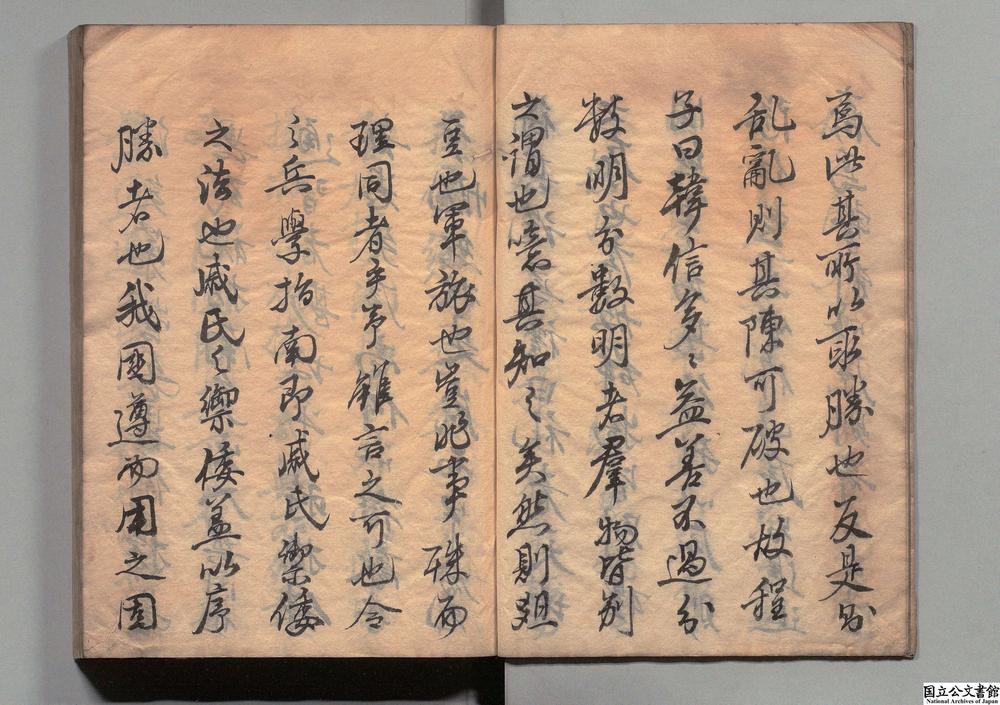 焉此其所以取勝也反是則
乱亂則其陳可破也故程
子曰韓信多〻益善不過分
数明分數明者羣物皆別
之謂也噫其知之矣然則俎
豆也軍旅也豈非事殊而
理同者乎等雖言之可也今
之兵學指南即戚氏禦倭
之法也戚氏之禦倭盖以序
勝者也我國遵而用之固
国立公文書館
National Archives of Japan